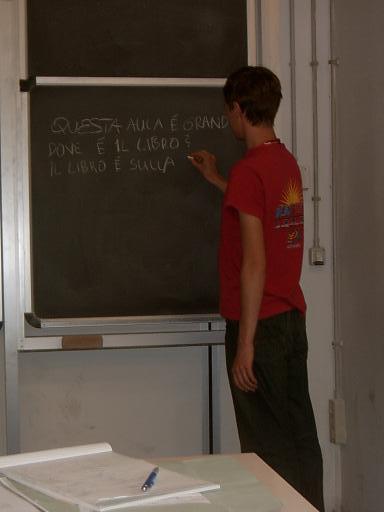 QUESTA AULA É GRAND
DOVE É IL LIBRO?
IL LIBRO É SULLA